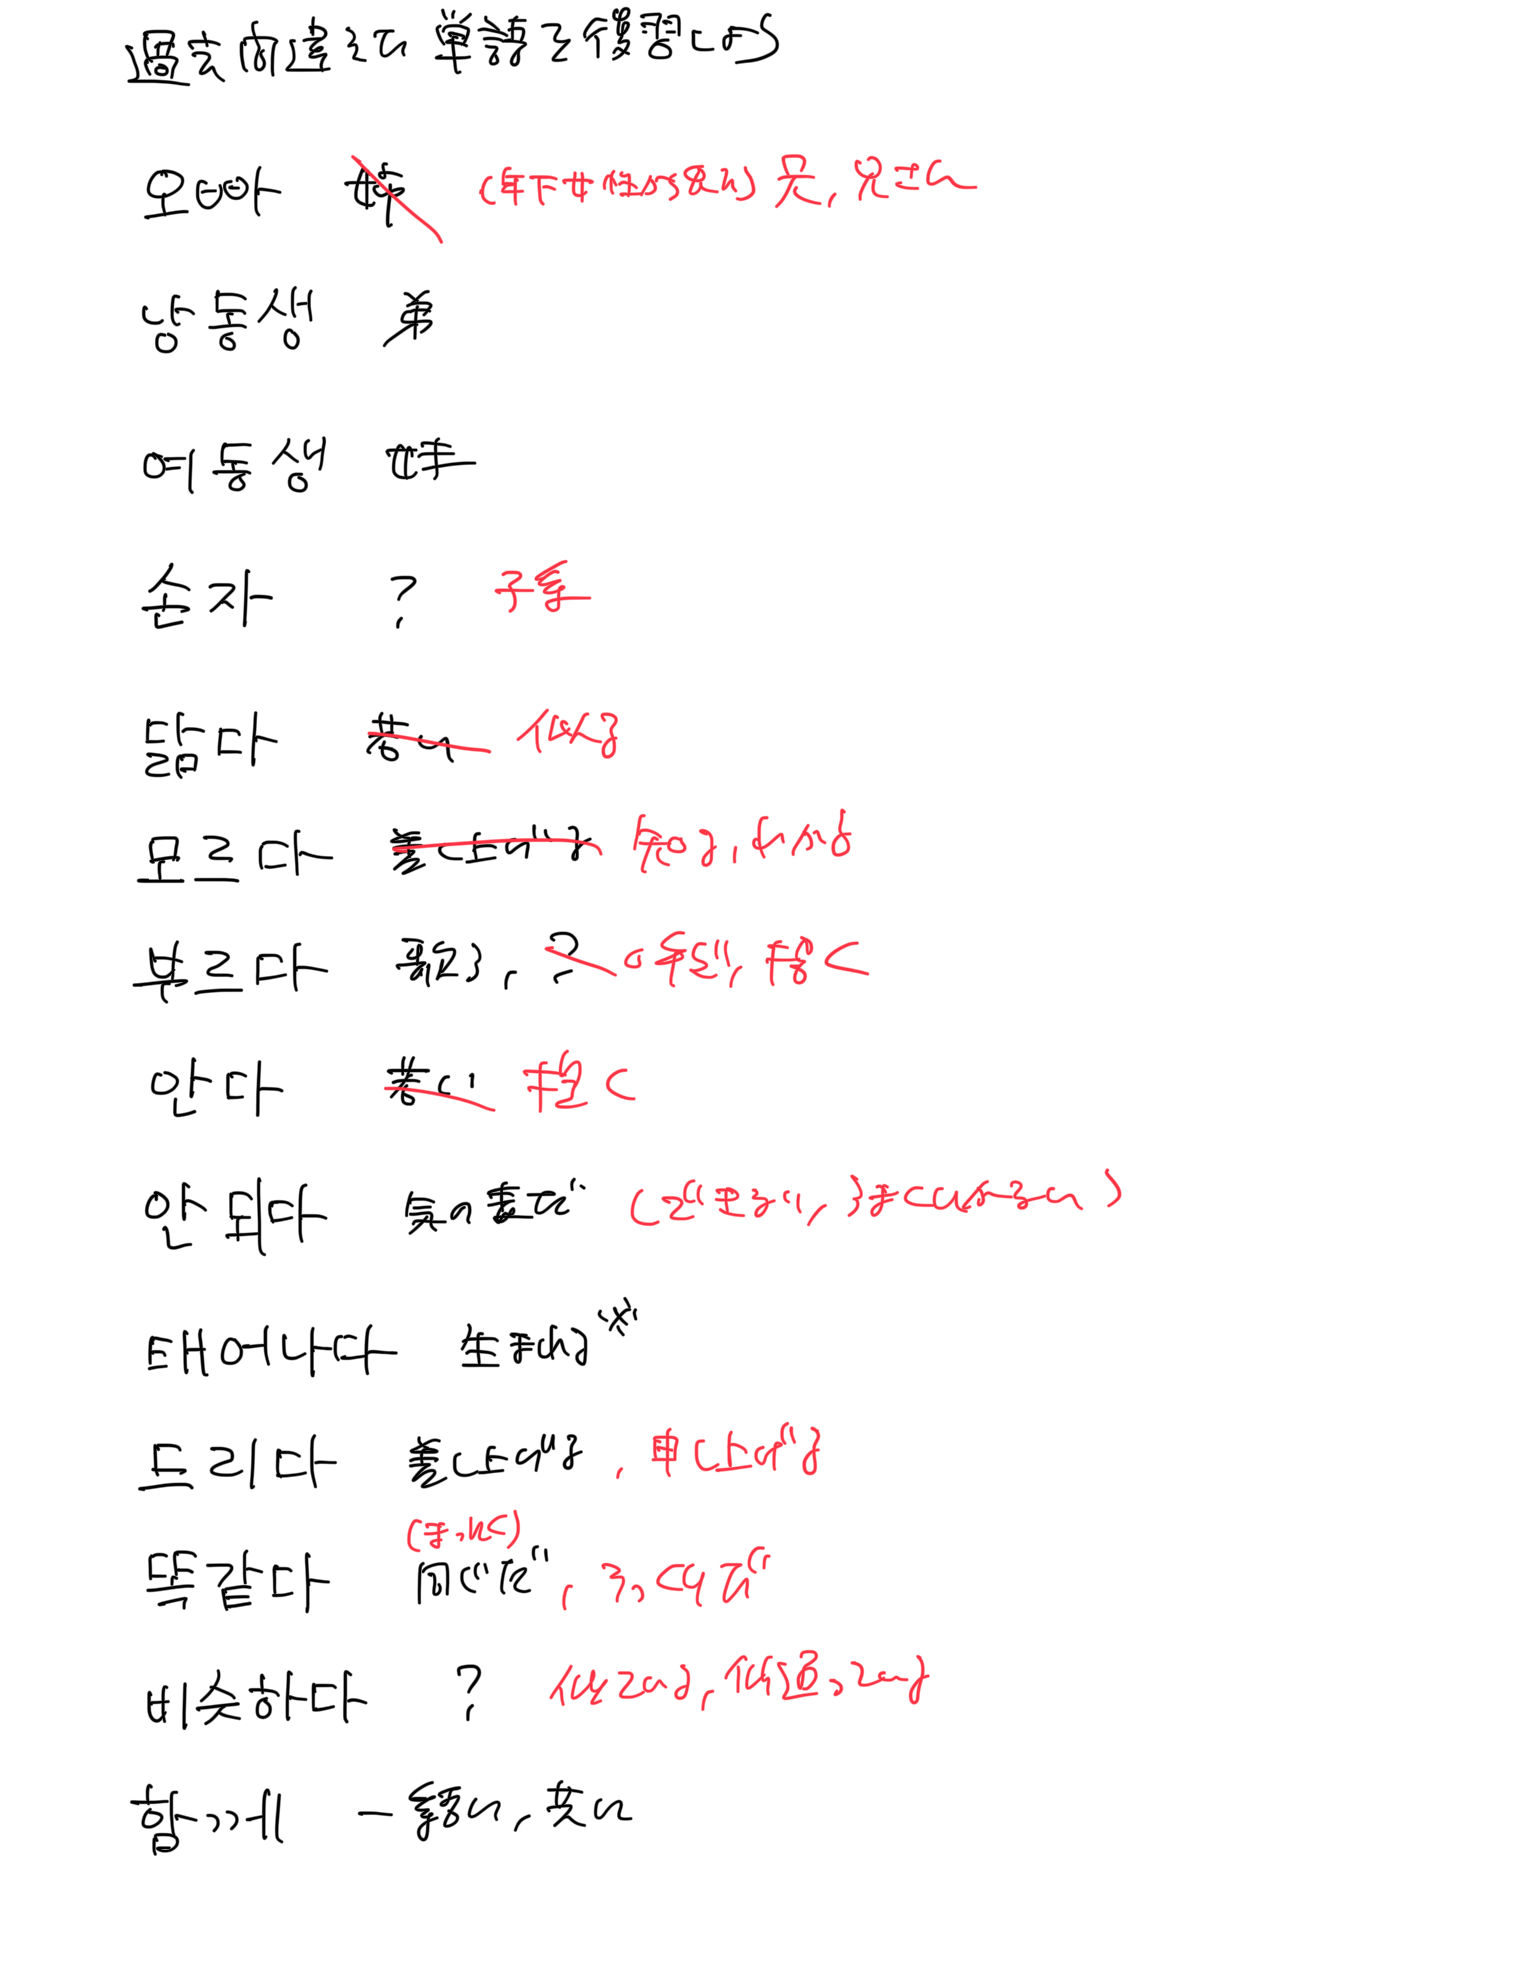 過去間違えた単語を復習しよう
오빠 姉 (年下女性から見て)兄, 兄さん
남동생 弟
여동생 妹
손자 ? 子孫
닮다 若い 似る
모르다 差し上げる 知らない, わからない
부르다 歌う, ? 呼ぶ, 招く
안다 若い 抱く
안되다 気の毒だ (できない, うまくいかない)
태어나다 生まれる
드리다 差し上げる, 申し上げる
(まったく)
똑같다 同じだ, そっくりだ
비슷하다 ? 似ている, 似通っている
함께 一緒に, 共に